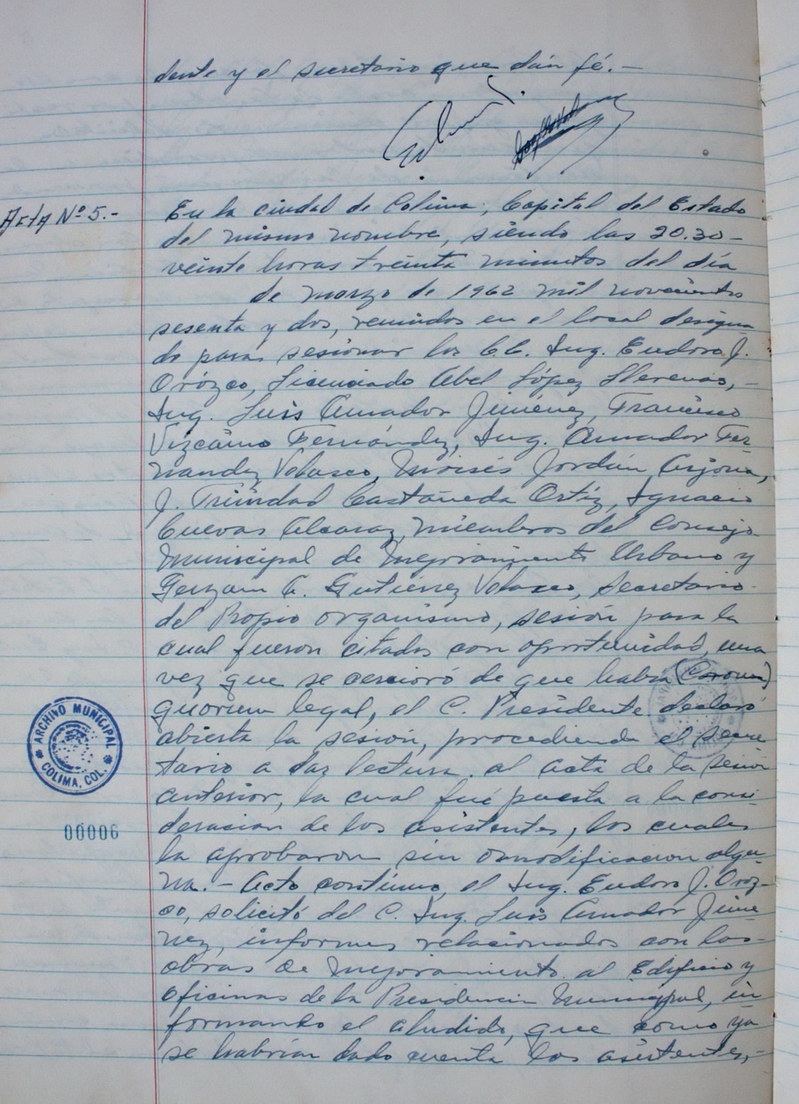 dente y el secretario que dán fé.-
Acta Nº 5.-
En la ciudad de Colima, Capital del Estado
del mismo nombre, siendo las 20.30-
veinte horas treinta minutos del día
de marzo de 1962 mil novecientos
sesenta y dos, reunidos en el local designa
do para sesionar los CC. Ing. Eudoro J.
Orózco, Licenciado Abel López Llerenas,-
Ing. Luis Amador Jiménez, Francisco
Vizcaino Fernández, Ing. Amador Fer-
nandez Velasco, Moisés Jordán Arjona,
J. Trinidad Castañeda Ortíz, Ignacio
Cuevas Alcaraz, miembros del Consejo
Municipal de Mejoramiento Urbano y
G. Gutiérrez Velasco, Secretario
del Propio organismo, sesión para la
cual fueron citados con oportunidad, una
vez que se cercioró de que habia
quorum legal, el C. Presidente declaró
abierta la sesión, procediendo el secre-
tario a dar lectura al acta de la sesión
anterior, la cual fué puesta a la consi-
deracion de los asistentes, los cuales
la aprobaron sin modificacion algu-
na.- Acto contínuo, el Ing. Eudoro J. Oroz-
co, solicitó del C. Ing. Luis Amador Jimé-
nez, informes relacionados con las-
obras de Mejoramiento al Edificio y
oficinas de la Presidencia Municipal, in
formando el aludido, que como ya
se habrían dado cuenta los asistentes,-
ARCHIVO MUNICIPAL
COLIMA, COL.
00006